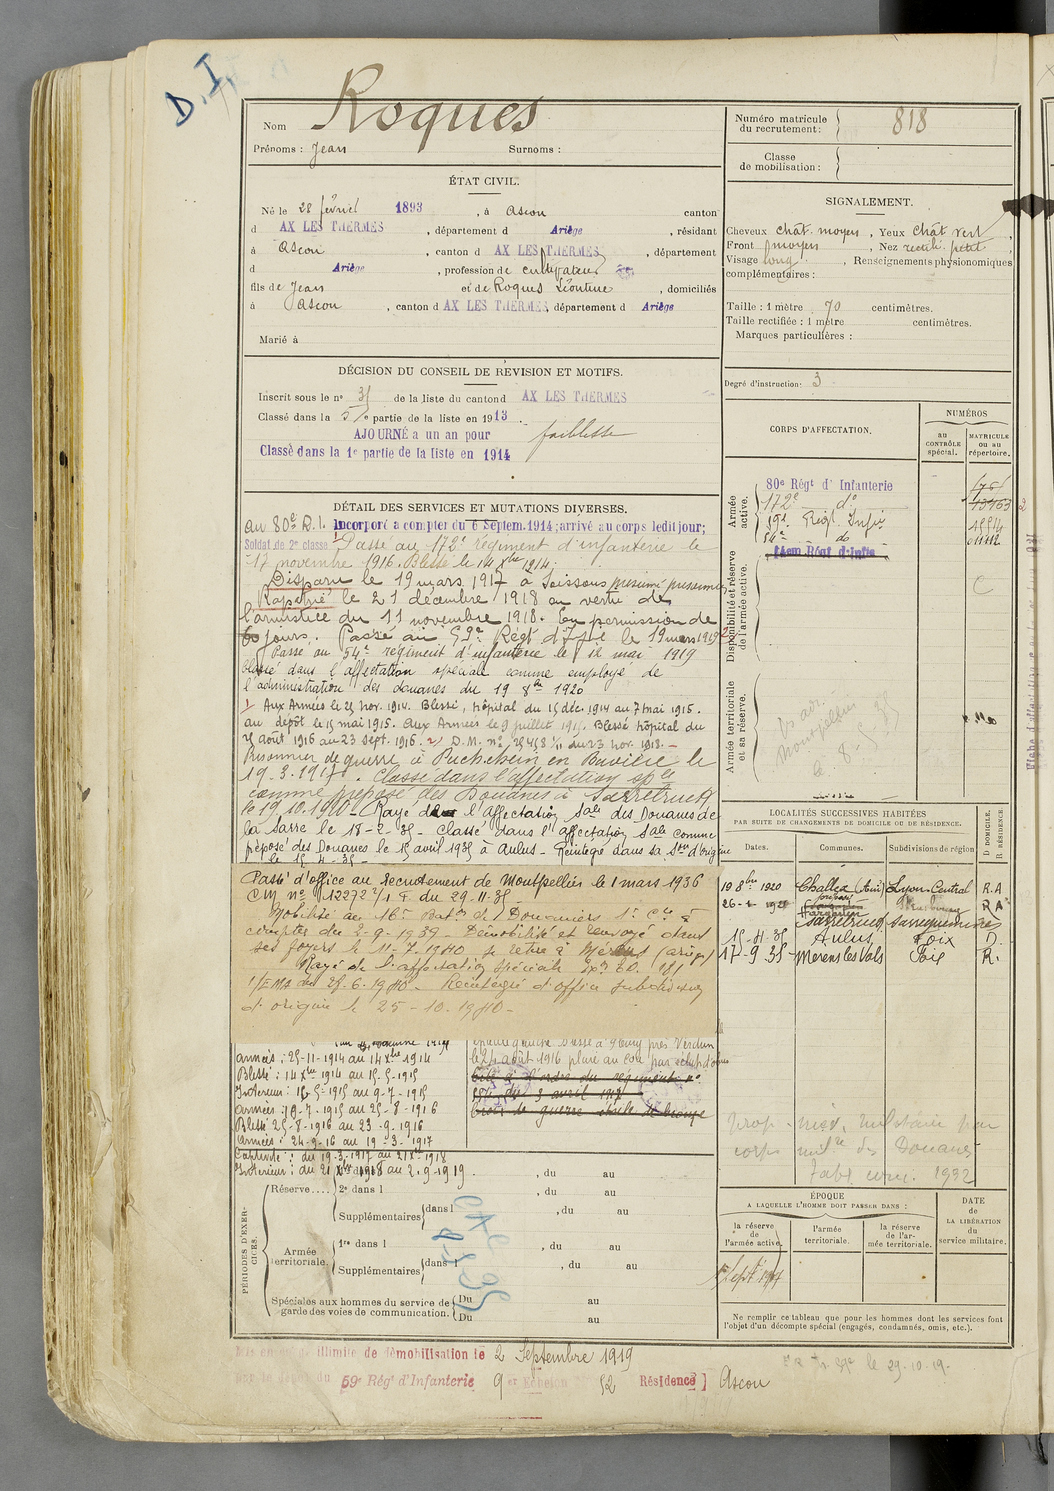 D.I.
Nom Roques
Prénoms : Jean Surnoms :
ÉTAT CIVIL.
Né le 28 février 1893, à Ascou canton
d AX LES THERMES, département d Ariège, résidant
à Ascou, canton d AX LES THERMES, département
d Ariège, profession de cultivateur
fils de Jean et de Roques Léontine, domiciliés
à Ascou, canton d AX LES THERMES, département d Ariège
Marié à
DÉCISION DU CONSEIL DE RÉVISION ET MOTIFS.
Inscrit sous le n° 35 de la liste du canton d AX LES THERMES
Classé dans la 5e partie de la liste en 1913
AJOURNÉ a un an pour faiblesse
Classé dans la 1e partie de la liste en 1914
DÉTAIL DES SERVICES ET MUTATIONS DIVERSES.
au 80e R.I. Incorporé a compter du 6 Septem. 1914; arrivé au corps ledit jour;
Soldat de 2e classe Passé au 172e régiment d'infanterie le
17 novembre 1916. Blessé le 14 Xbre 1914.
Disparu le 19 mars 1917 à Soissons présumé prisonnier
Rapatrié le 21 décembre 1918 en vertu de
l'armistice du 11 novembre 1918. En permission de
60 jours. Passé au 59e Régt d'Infie le 19 mars 1919
Passé au 54e régiment d'infanterie le 12 mai 1919
Classé dans l'affectation spéciale comme employé de
l'administration des douanes du 19 8bre 1920
1) Aux Armées le 25 nov. 1914. Blessé, hôpital du 15 déc. 1914 au 7 mai 1915.
au dépôt le 15 mai 1915. Aux Armées le 9 juillet 1915. Blessé hôpital du
25 août 1916 au 23 sept. 1916. 2) D.M. n° 25458 1/11 du 23 nov. 1918.-
Prisonnier de guerre à Puchheim en Bavière le
19-3-1917. Classé dans l'affectation sple
comme préposé des Douanes à Sarretruck
le 19.10.1920_ Rayé de l'affectation Sale des Douanes de
la Sarre le 18-2-35_ Classé dans l'affectation Sale comme
préposé des Douanes le 15 avril 1935 à Aulus_ Réintégré dans sa Son d'origine
le 15-4-35_
Passé d'office au Recrutement de Montpellier le 1 mars 1936
CM n° 12272 1/1 F du 29-11-35-
Mobilisé au 16e Batn de Douaniers 1e Cie à
compter du 2-9-1939_ Démobilisé et renvoyé dans
ses foyers le 11-7-1940 se retire à Mérens (ariège)
Rayé de l'affectation spéciale 181
1/EMA du 25.6.1940_ Réintégré d'office subdivision
d'origine le 25-10-1940_
armées : 25-11-1914 au 14 Xbre 1914
Blessé : 14 Xbre 1914 au 15-5-1915
Intérieur : 15-5-1915 au 9-7-1915
armées : 10-7-1915 au 25-8-1916
Blessé 25-8-1916 au 23-9-1916
armées : 24-9-16 au 19-3-1917
Captivité : du 19-3-1917 au 21 Xbre 1918
Intérieur : du 21 Xbre 1918 au 2-9-1919
gauche Blessé à Fleury près Verdun
le 24 août 1916 plaie au cou par éclat d'obus
Cité à l'ordre du régiment n°
du 3 avril 1917
Croix de guerre étoile de bronze
PÉRIODES D'EXERCICES.
Réserve....
2e dans l , du au
Supplémentaires dans l , du au
Armée territoriale.
1re dans l , du au
Supplémentaires dans l , du au
Spéciales aux hommes du service de garde des voies de communication.
Du au
Du au
illimité de démobilisation le 2 Septembre 1919
59e Rég t d'Infanterie 9er Echelon 52 Résidence] Ascou
Numéro matricule du recrutement : 818
Classe de mobilisation :
SIGNALEMENT.
Cheveux chât. moyen, Yeux chât vert,
Front moyen, Nez rectil. petit
Visage long, Renseignements physionomiques
complémentaires :
Taille : 1 mètre 70 centimètres.
Taille rectifiée : 1 mètre centimètres.
Marques particulières :
Degré d'instruction : 3
CORPS D'AFFECTATION.
NUMÉROS
au CONTRÔLE spécial.
MATRICULE ou au répertoire.
Armée active.
80e Régt d'Infanterie
172e do 13963
59e Régt Infie
54e do
Disponibilité et réserve de l'armée active.
Armée territoriale et sa réserve.
Montpellier
le 8-5-35
LOCALITÉS SUCCESSIVES HABITÉES
PAR SUITE DE CHANGEMENTS DE DOMICILE OU DE RÉSIDENCE.
Dates. Communes. Subdivisions de région D DOMICILE. R RÉSIDENCE
19 8bre 1920 Challex (Ain) Lyon-Central R.A
Sarretruck Sarreguemines
15-4-35 Aulus Foix D.
17-9-35 Merens les Vals Foix R.
corps milre des Douanes
1932
ÉPOQUE
A LAQUELLE L'HOMME DOIT PASSER DANS :
la réserve de l'armée active.
l'armée territoriale.
la réserve de l'armée territoriale.
DATE de LA LIBÉRATION du service militaire.
1er Sept 1917
Ne remplir ce tableau que pour les hommes dont les services font
l'objet d'un décompte spécial (engagés, condamnés, omis, etc.).
le 29-10-19-